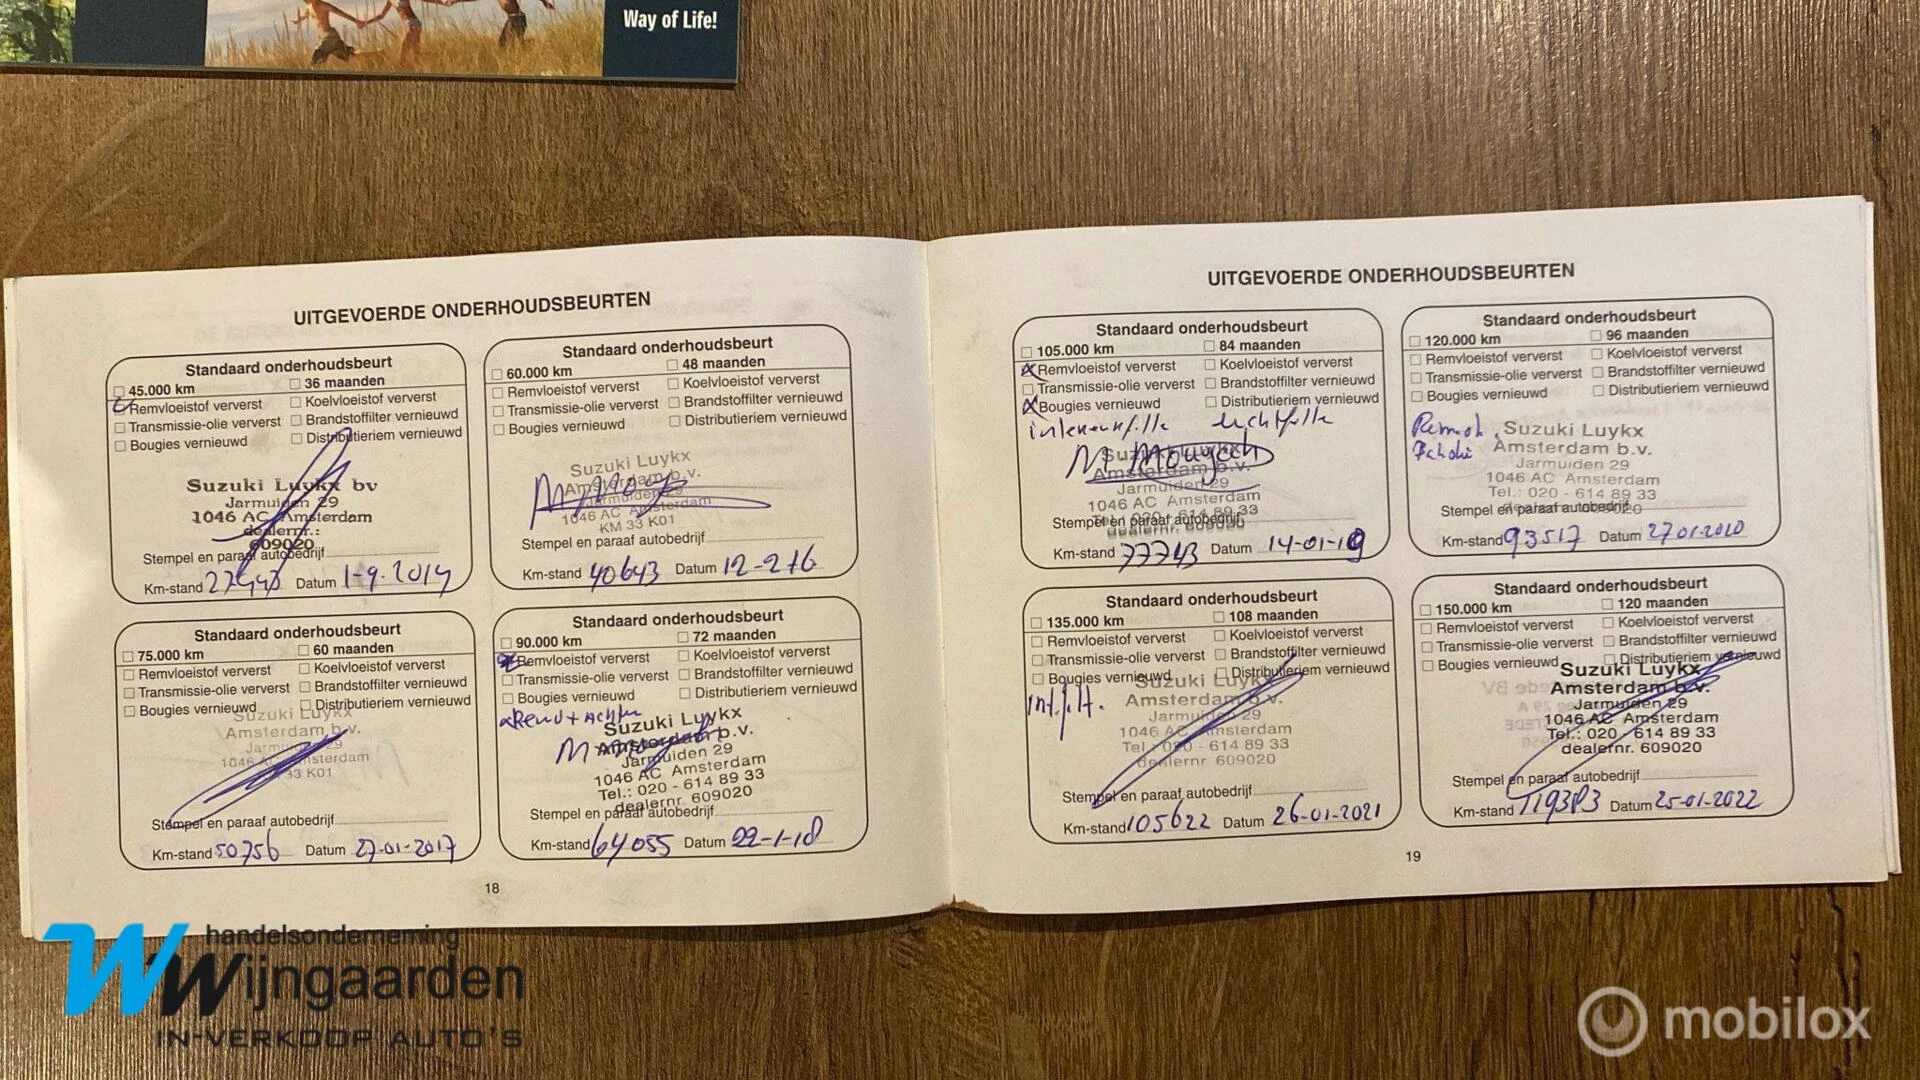 Way of Life!
UITGEVOERDE ONDERHOUDSBEURTEN
Standaard onderhoudsbeurt
45.000 km 36 maanden
Remvloeistof ververst Koelvloeistof ververst
Transmissie-olie ververst Brandstoffilter vernieuwd
Bougies vernieuwd Distributieriem vernieuwd
Suzuki Luykx bv
Jarmuiden 29
1046 AC Amsterdam
dealernr.:
609020
Stempel en paraaf autobedrijf
Km-stand Datum 1-9-2014
Standaard onderhoudsbeurt
60.000 km 48 maanden
Remvloeistof ververst Koelvloeistof ververst
Transmissie-olie ververst Brandstoffilter vernieuwd
Bougies vernieuwd Distributieriem vernieuwd
Suzuki Luykx
Amsterdam b.v.
Jarmuiden 29
1046 AC Amsterdam
KM 33 K01
Stempel en paraaf autobedrijf
Km-stand 40643 Datum 12-216
Standaard onderhoudsbeurt
75.000 km 60 maanden
Remvloeistof ververst Koelvloeistof ververst
Transmissie-olie ververst Brandstoffilter vernieuwd
Bougies vernieuwd Distributieriem vernieuwd
Suzuki Luykx
Amsterdam b.v.
Jarmuiden 29
1046 AC Amsterdam
33 K01
Stempel en paraaf autobedrijf
Km-stand 50756 Datum 27-01-2017
Standaard onderhoudsbeurt
90.000 km 72 maanden
Remvloeistof ververst Koelvloeistof ververst
Transmissie-olie ververst Brandstoffilter vernieuwd
Bougies vernieuwd Distributieriem vernieuwd
Suzuki Luykx
Amsterdam b.v.
Jarmuiden 29
1046 AC Amsterdam
Tel.: 020 - 614 89 33
dealernr. 609020
Stempel en paraaf autobedrijf
Km-stand 64055 Datum 22-1-18
18
UITGEVOERDE ONDERHOUDSBEURTEN
Standaard onderhoudsbeurt
105.000 km 84 maanden
Remvloeistof ververst Koelvloeistof ververst
Transmissie-olie ververst Brandstoffilter vernieuwd
Bougies vernieuwd Distributieriem vernieuwd
Suzuki Luykx
Amsterdam b.v.
Jarmuiden 29
1046 AC Amsterdam
Tel.: 020 - 614 89 33
dealernr. 609020
Stempel en paraaf autobedrijf
Km-stand 77743 Datum 14-01-19
Standaard onderhoudsbeurt
120.000 km 96 maanden
Remvloeistof ververst Koelvloeistof ververst
Transmissie-olie ververst Brandstoffilter vernieuwd
Bougies vernieuwd Distributieriem vernieuwd
Suzuki Luykx
Amsterdam b.v.
Jarmuiden 29
1046 AC Amsterdam
Tel.: 020 - 614 89 33
Stempel en paraaf autobedrijf
Km-stand 93517 Datum 27012010
Standaard onderhoudsbeurt
135.000 km 108 maanden
Remvloeistof ververst Koelvloeistof ververst
Transmissie-olie ververst Brandstoffilter vernieuwd
Bougies vernieuwd Distributieriem vernieuwd
Suzuki Luykx
Amsterdam b.v.
Jarmuiden 29
1046 AC Amsterdam
Tel.: 020 - 614 89 33
dealernr. 609020
Stempel en paraaf autobedrijf
Km-stand 105622 Datum 26-01-2021
Standaard onderhoudsbeurt
150.000 km 120 maanden
Remvloeistof ververst Koelvloeistof ververst
Transmissie-olie ververst Brandstoffilter vernieuwd
Bougies vernieuwd Distributieriem vernieuwd
Suzuki Luykx
Amsterdam b.v.
Jarmuiden 29
1046 AC Amsterdam
Tel.: 020 - 614 89 33
dealernr. 609020
Stempel en paraaf autobedrijf
Km-stand Datum 25-01-2022
19
handelsonderneming
Wijngaarden
IN-VERKOOP AUTO'S
mobilox